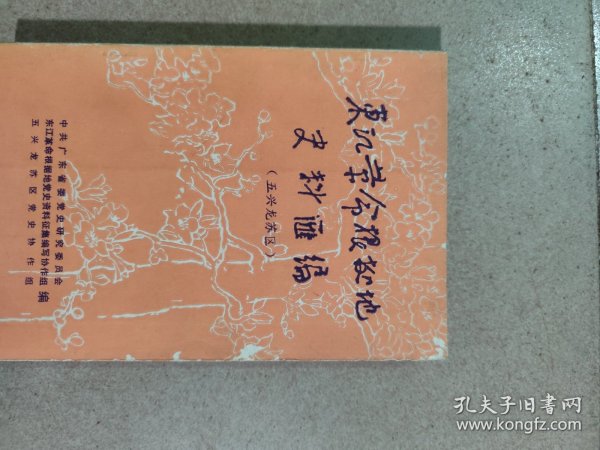 东江革命根据地
史料汇编
(五兴龙苏区)
中共广东省委党史研究委员会
东江革命根据地党史资料征集编写协作组 编
五兴龙苏区党史协作组
孔夫子旧书网
www.kongfz.com